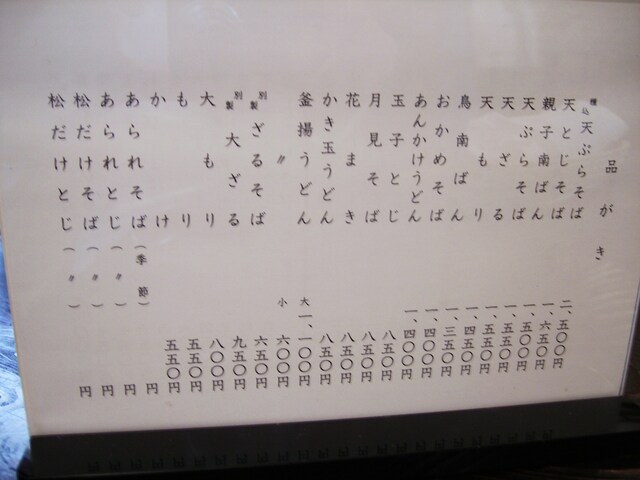 品がき
種込 天ぷらそば 二、五〇〇円
天とじそば 一、六五〇円
親子南ばん 一、五〇〇円
天ぷらそば 一、五五〇円
天ざる 一、五五〇円
天もり 一、四五〇円
鳥南ばん 一、三五〇円
おかめそば 一、四〇〇円
あんかけうどん 一、四〇〇円
玉子とじ 八五〇円
月見そば 八五〇円
花まき 八五〇円
かき玉うどん 八五〇円
釜揚うどん 大 一、一〇〇円
〃 小 六〇〇円
別製 ざるそば 六五〇円
別製 大ざる 九五〇円
大もり 八〇〇円
もり 五五〇円
かけ 五五〇円
あられそば(季節) 円
あられとじ(〃) 円
松だけそば(〃) 円
松だけとじ(〃) 円